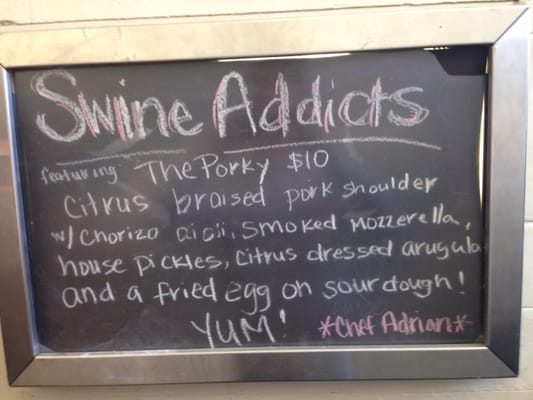 Swine Addicts
featuring The Porky $10
Citrus braised pork shoulder
w/ chorizo aioli, smoked mozzerella,
house pickles, citrus dressed arugula
and a fried egg on sourdough!
YUM! *Chef Adrian*